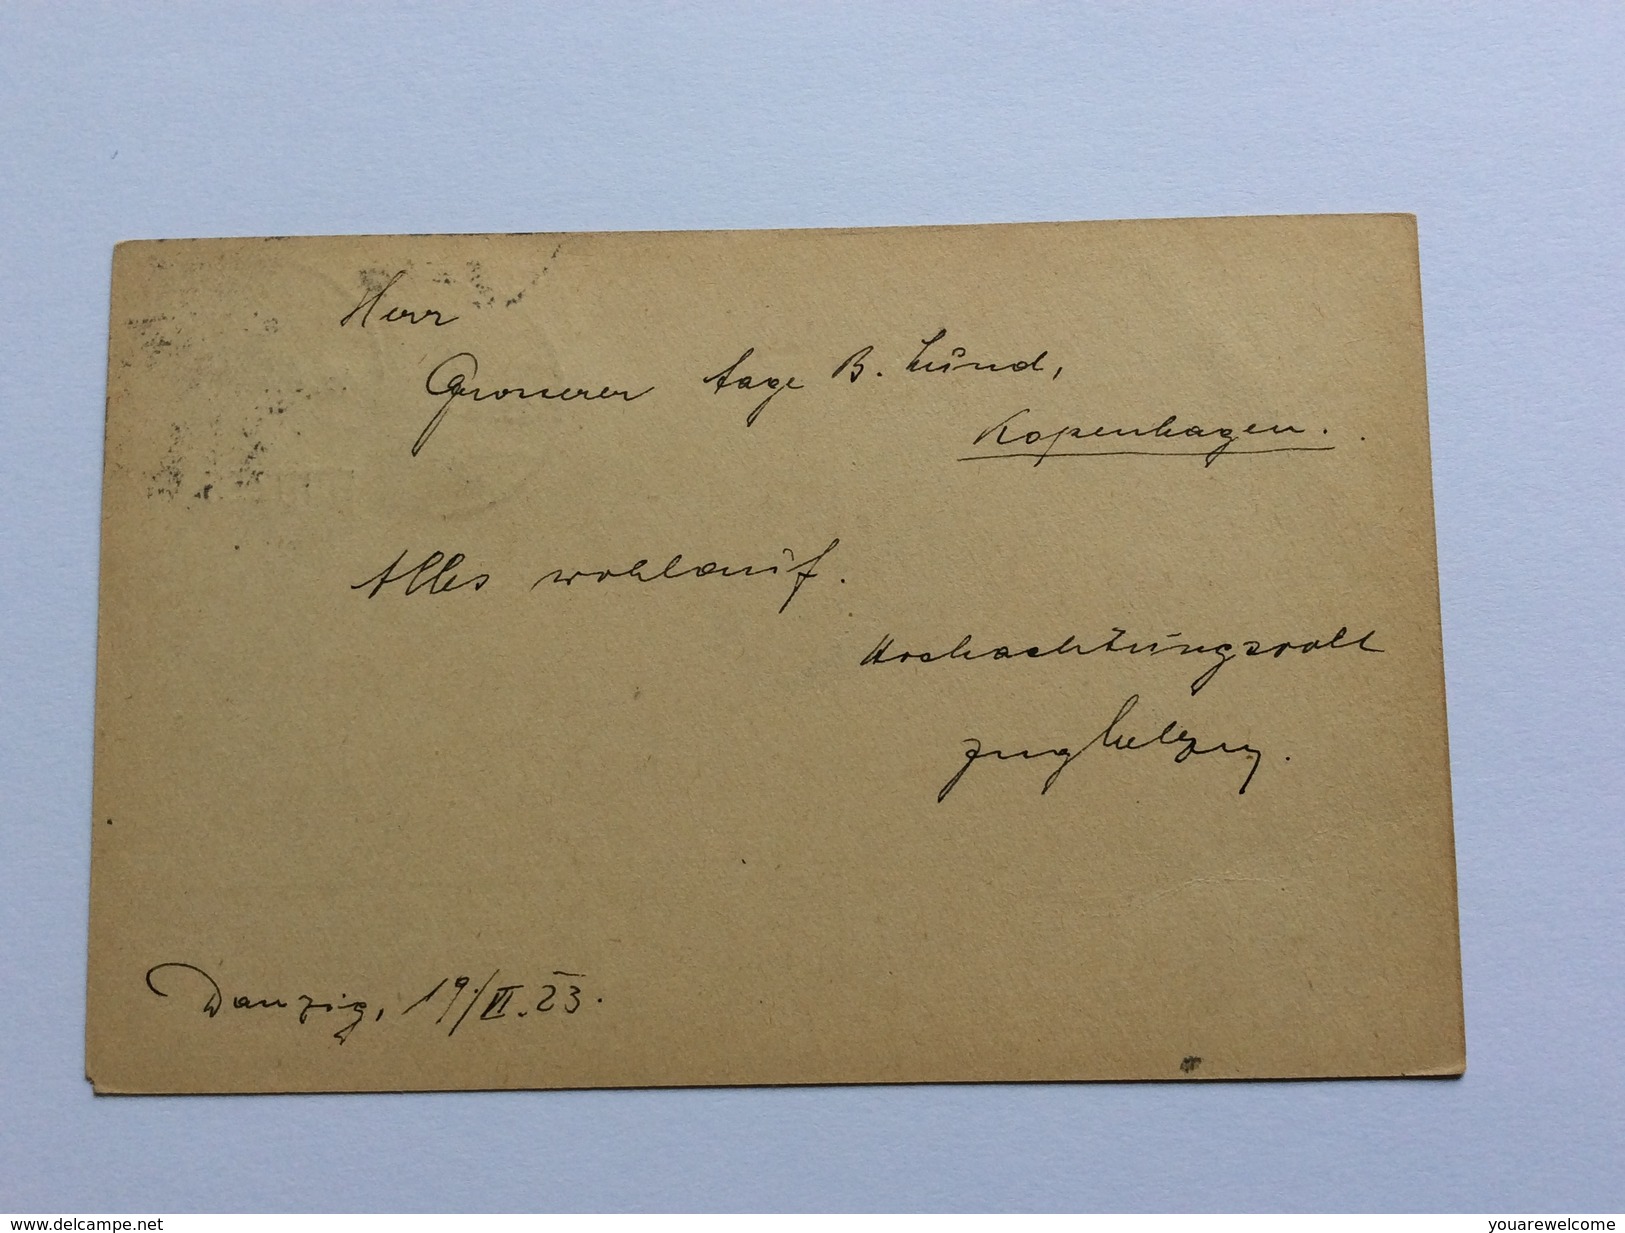 Herr
Grosserer Aage B. Lund,
Kopenhagen.
Alles wohlauf.
Hochachtungsvoll
Danzig, 19/VI.23.
www.delcampe.net
youarewelcome